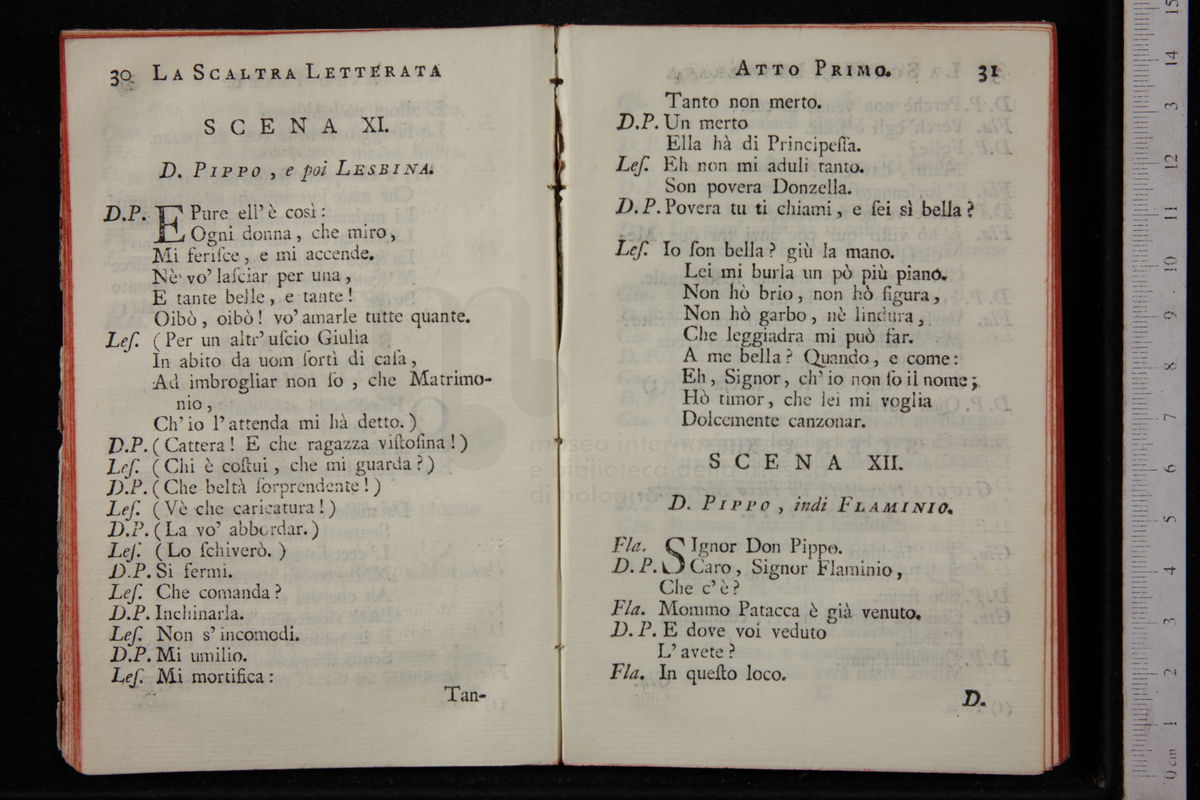 30 LA SCALTRA LETTERATA
SCENA XI.
D. PIPPO, e poi LESBINA.
D.P. E Pure ell' è così:
Ogni donna, che miro,
Mi ferisce, e mi accende.
Nè vo' lasciar per una,
E tante belle, e tante!
Oibò, oibò! vo' amarle tutte quante.
Les. (Per un altr' uscio Giulia
In abito da uom sortì di casa,
Ad imbrogliar non so, che Matrimo-
nio,
Ch' io l' attenda mi hà detto.)
D.P. (Cattera! E che ragazza vistosina!)
Les. (Chi è costui, che mi guarda?)
D.P. (Che beltà sorprendente!)
Les. (Vè che caricatura!)
D.P. (La vo' abbordar.)
Les. (Lo schiverò.)
D.P. Si fermi.
Les. Che comanda?
D.P. Inchinarla.
Les. Non s' incomodi.
D.P. Mi umilio.
Les. Mi mortifica:
Tan-
ATTO PRIMO. 31
Tanto non merto.
D.P. Un merto
Ella hà di Principessa.
Les. Eh non mi aduli tanto.
Son povera Donzella.
D.P. Povera tu ti chiami, e sei sì bella?
Les. Io son bella? giù la mano.
Lei mi burla un pò più piano.
Non hò brio, non hò figura,
Non hò garbo, nè lindura,
Che leggiadra mi può far.
A me bella? Quando, e come:
Eh, Signor, ch' io non so il nome;
Hò timor, che lei mi voglia
Dolcemente canzonar.
SCENA XII.
D. PIPPO, indi FLAMINIO.
Fla. SIgnor Don Pippo.
D.P. Caro, Signor Flaminio,
Che c' è?
Fla. Mommo Patacca è già venuto.
D.P. E dove voi veduto
L' avete?
Fla. In questo loco.
D.
museo internazionale
e biblioteca della
di bologna
0 cm 1 2 3 4 5 6 7 8 9 10 11 12 13 14 15